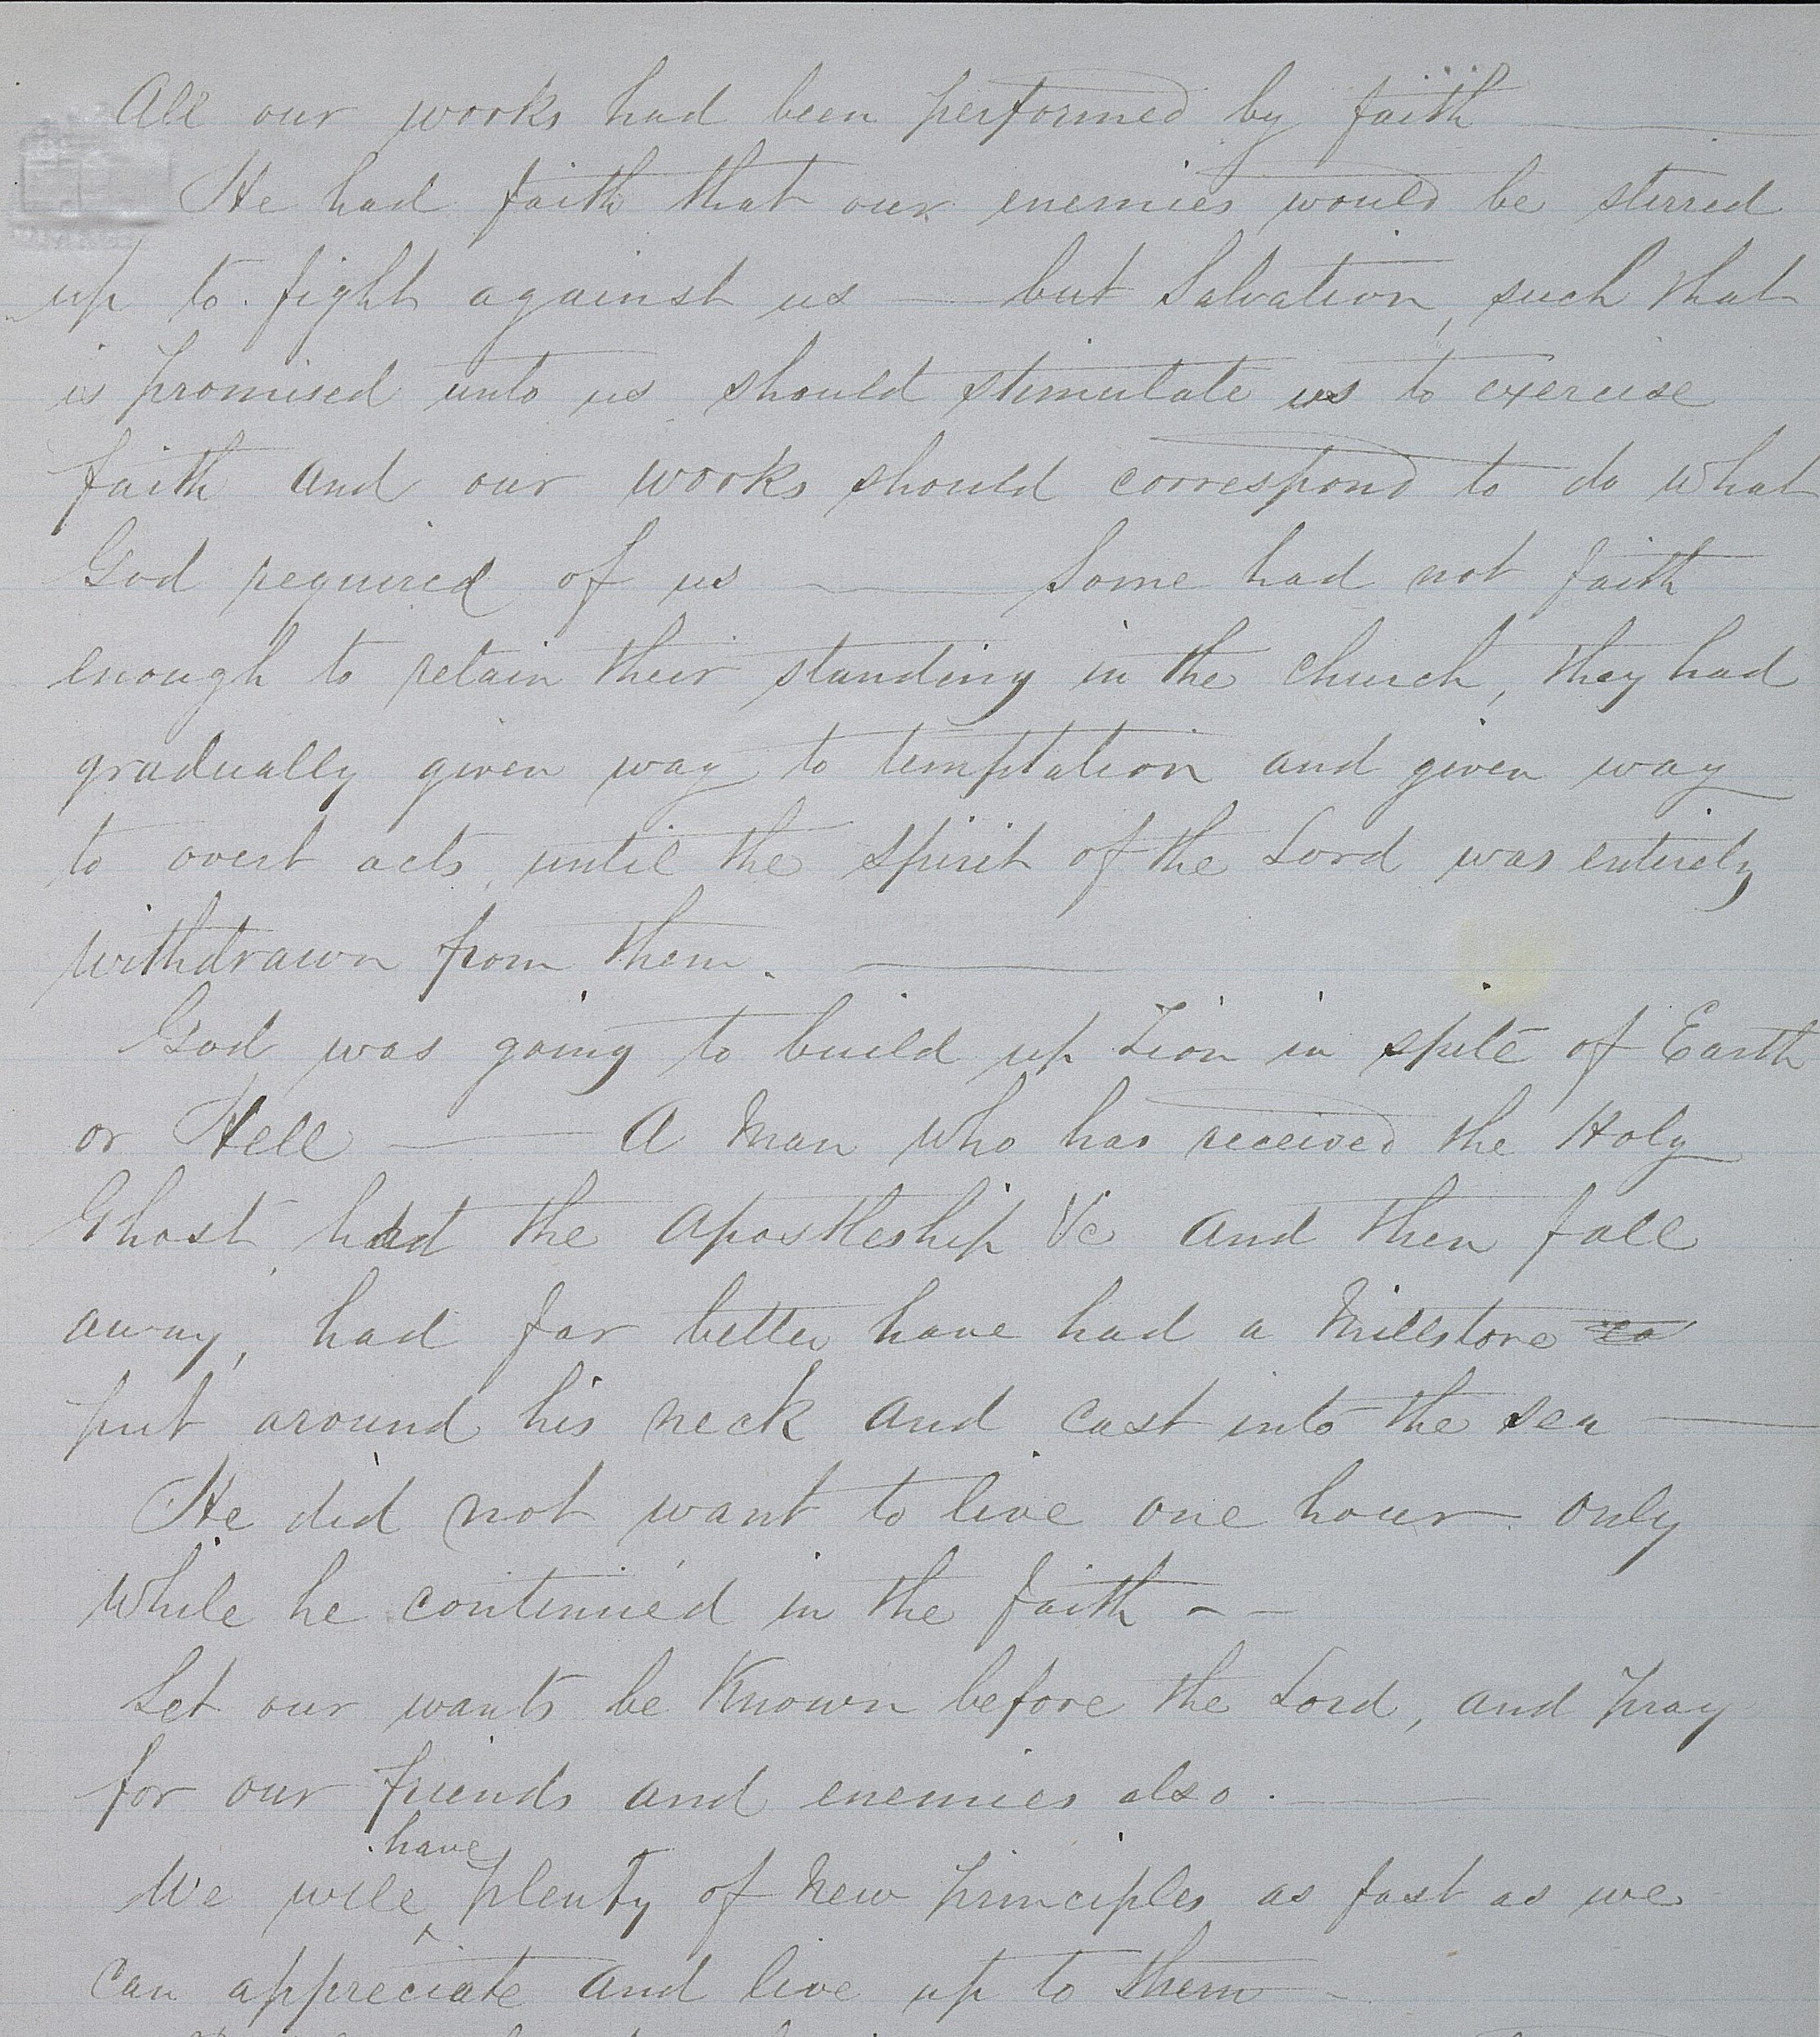 All our works had been performed by faith —
He had faith that our enemies would be stirred
up to fight against us — but Salvation, such that
is promised unto us should stimulate us to exercise
faith and our works should correspond to do what
God required of us — Some had not faith
enough to retain their standing in the Church, they had
gradually given way to temptation and given way
to overt acts, until the spirit of the Lord was entirely
withdrawn from them. —
God was going to build up Zion in spite of Earth
or Hell — A Man who has received the Holy
Ghost, had the apostleship &c and then fall
away, had far better have had a Millstone to
put around his neck and cast into the sea —
He did not want to live one hour only
while he continued in the faith - -
Let our wants be Known before the Lord, and pray
for our friends and enemies also. —
have
We will ^ plenty of New principles as fast as we
can appreciate and live up to them -